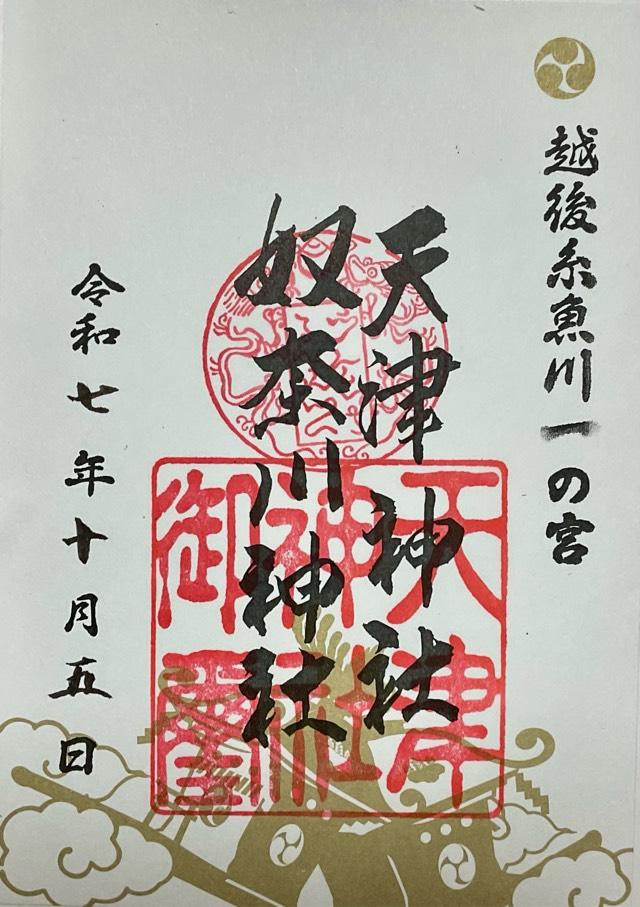 越後糸魚川一の宮
天津神社
奴奈川神社
天津
神社
御璽
令和七年十月五日